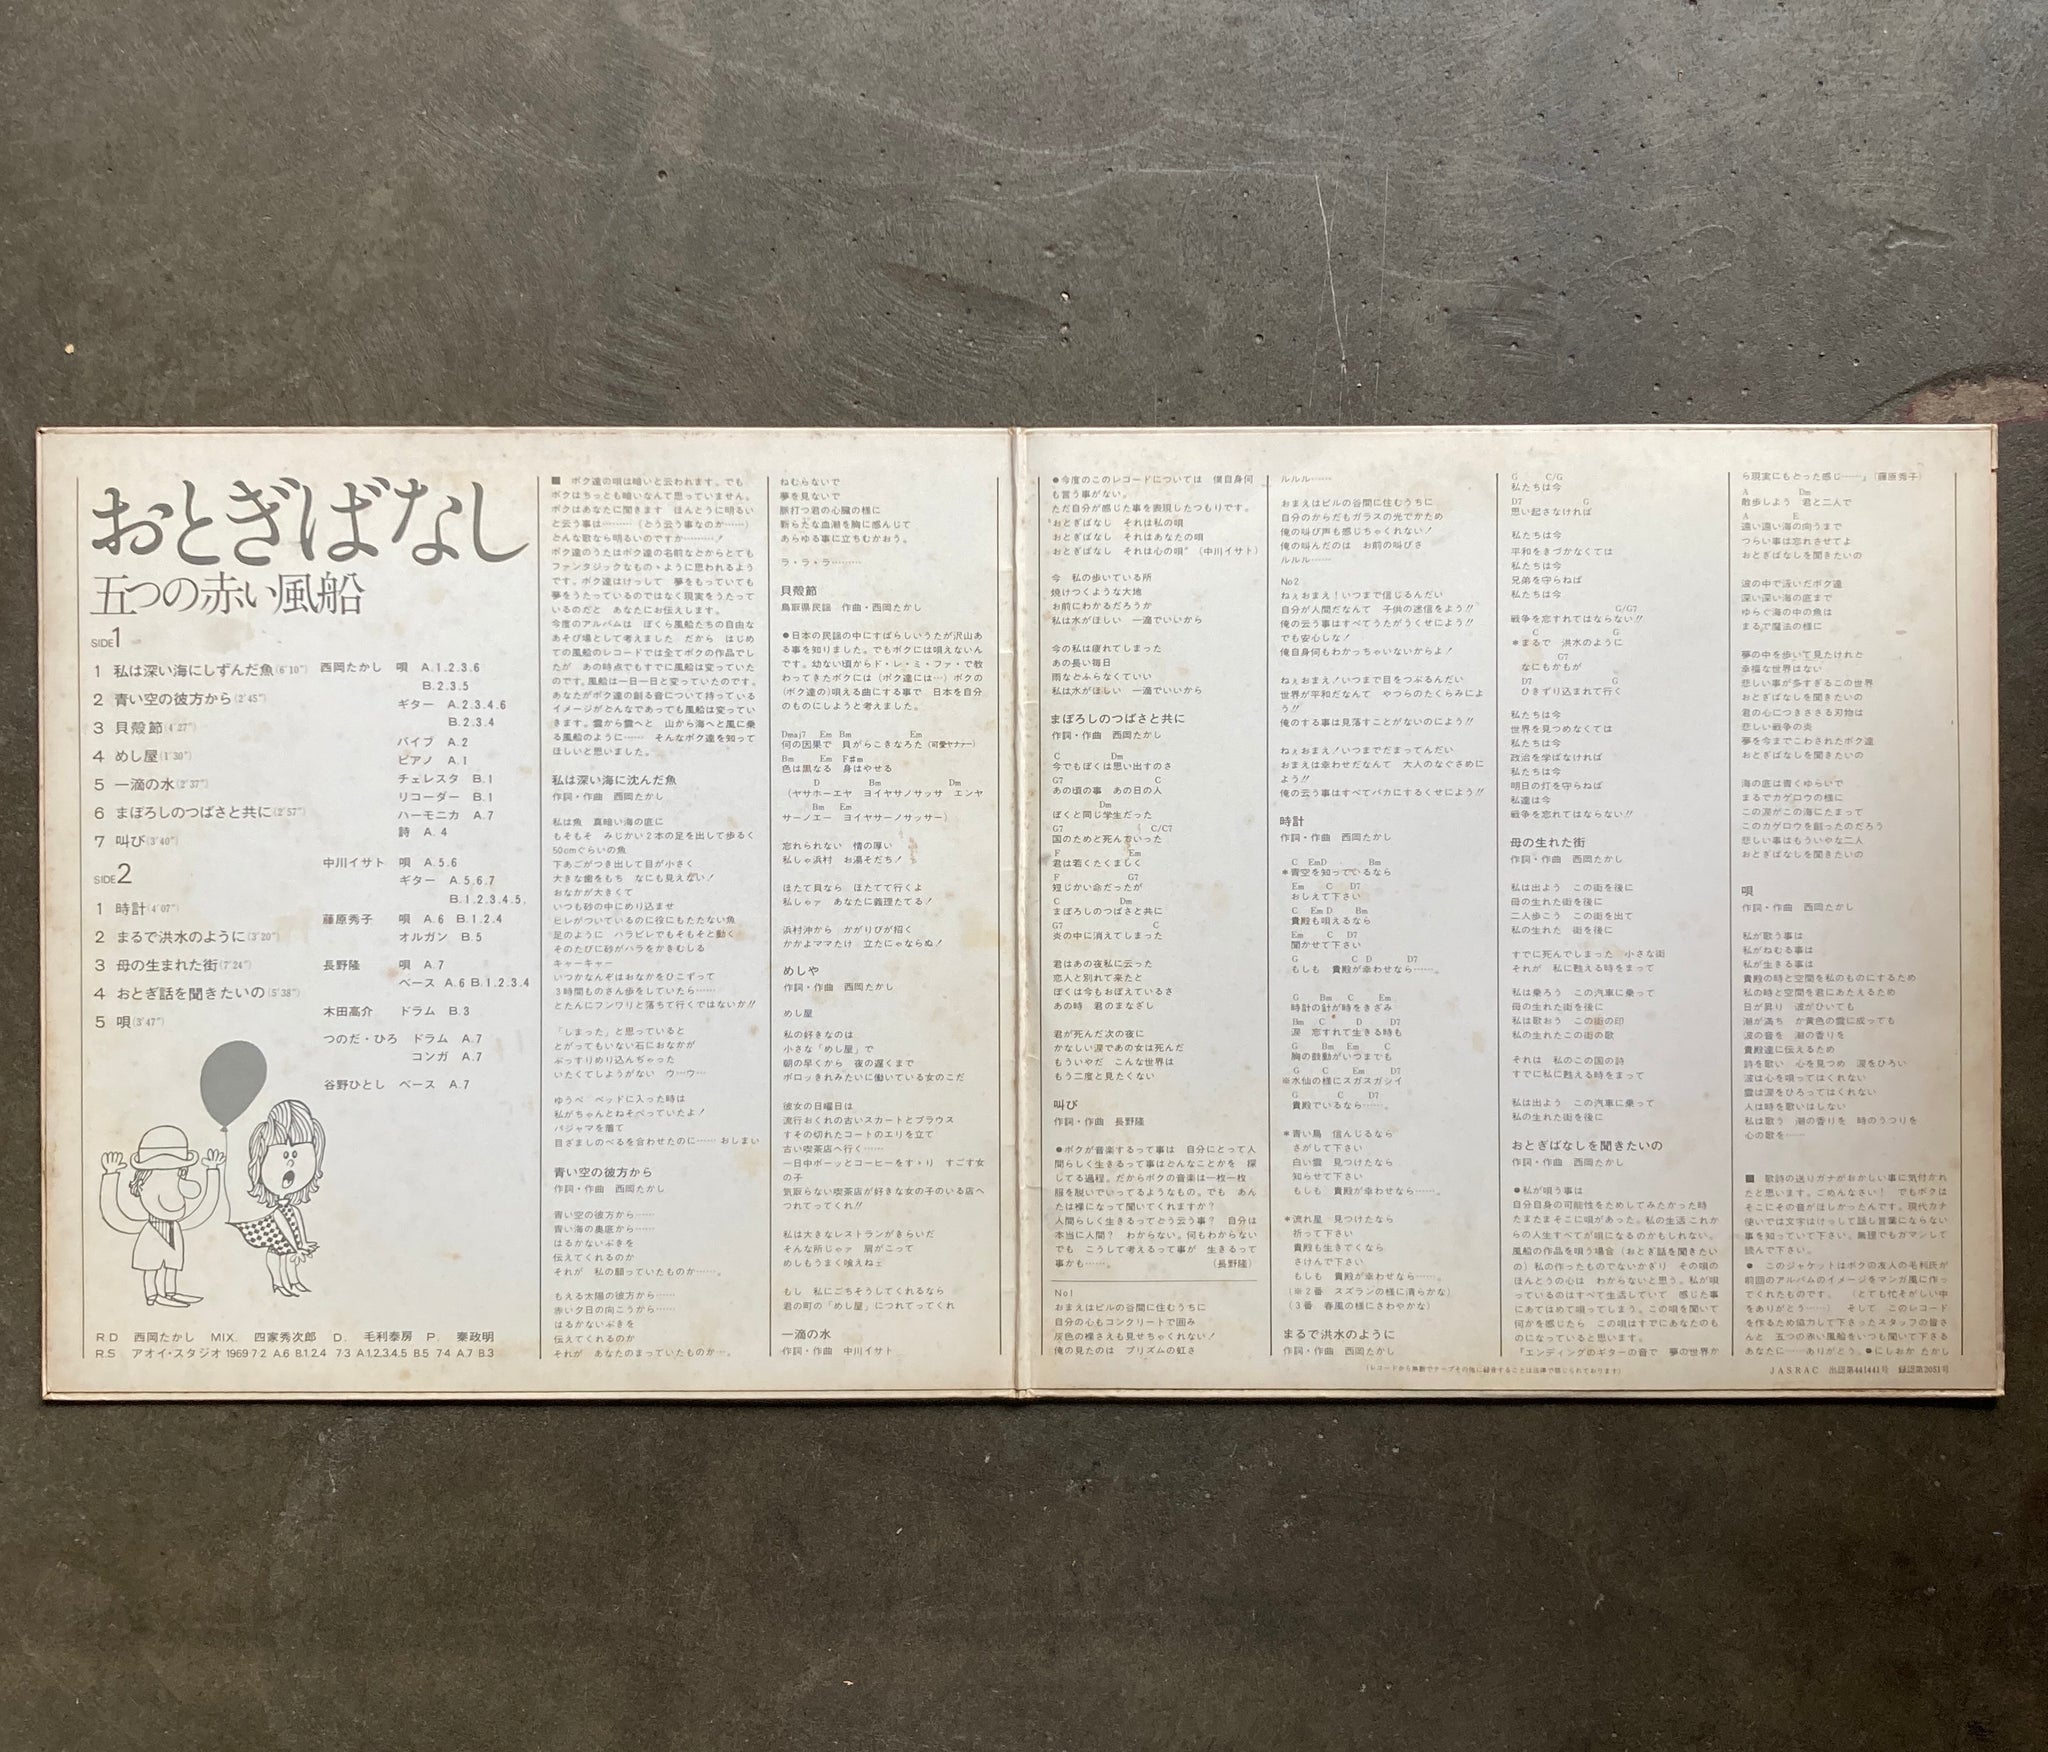 おとぎばなし
五つの赤い風船
SIDE1
1 私は深い海にしずんだ魚(6'10")
2 青い空の彼方から(2'45")
3 貝殻節(4'27")
4 めし屋(1'30")
5 一滴の水(2'37")
6 まぼろしのつばさと共に(2'57")
7 叫び(3'40")
SIDE2
1 時計(4'07")
2 まるで洪水のように(3'20")
3 母の生まれた街(7'24")
4 おとぎ話を聞きたいの(5'38")
5 唄(3'47")
西岡たかし 唄 A.1.2.3.6
B.2.3.5
ギター A.2.3.4.6
B.2.3.4
パイプ A.2
ピアノ A.1
チェレスタ B.1
リコーダー B.1
ハーモニカ A.7
詩 A.4
中川イサト 唄 A.5.6
ギター A.5.6.7
B.1.2.3.4.5.
藤原秀子 唄 A.6 B.1.2.4
オルガン B.5
長野隆 唄 A.7
ベース A.6 B.1.2.3.4
木田高介 ドラム B.3
つのだ・ひろ ドラム A.7
コンガ A.7
谷野ひとし ベース A.7
R D 西岡たかし MIX. 四家秀次郎 D. 毛利泰房 P. 秦政明
R.S アオイ・スタジオ 1969 7·2 A.6 B.1.2.4 7·3 A.1.2.3.4.5 B.5 7·4 A.7 B.3
■ ボク達の唄は暗いと云われます。でも
ボクはちっとも暗いなんて思っていません。
ボクはあなたに聞きます ほんとうに明るい
と云う事は………(とう云う事なのか……)
どんな歌なら明るいのですか………!
ボク達のうたはボク達の名前などからとても
ファンタジックなものゝように思われるよう
です。ボク達はけっして 夢をもっていても
夢をうたっているのではなく現実をうたって
いるのだと あなたにお伝えします。
今度のアルバムは ぼくら風船たちの自由な
あそび場として考えました だから はじめ
ての風船のレコードでは全てボクの作品でし
たが あの時点でもすでに風船は変っていた
のです。風船は一日一日と変っていたのです。
あなたがボク達の創る音について持っている
イメージがどんなであっても風船は変ってい
きます。雲から雲へと 山から海へと風に乗
る風船のように…… そんなボク達を知って
ほしいと思いました。
私は深い海に沈んだ魚
作詞・作曲 西岡たかし
私は魚 真暗い海の底に
もそもそ みじかい2本の足を出して歩るく
50cmぐらいの魚
下あごがつき出して目が小さく
大きな歯をもち なにも見えない!
おなかが大きくて
いつも砂の中にめり込ませ
ヒレがついているのに役にもたたない魚
足のように ハラビレでもそもそと動く
そのたびに砂がハラをかきむしる
キャーキャー
いつかなんぞはおなかをひこずって
3時間ものさん歩をしていたら……
とたんにフンワリと落ちて行くではないか!!
「しまった」と思っていると
とがってもいない石におなかが
ぶっすりめり込んぢゃった
いたくてしようがない ウ…ウ…
ゆうべ ベッドに入った時は
私がちゃんとねそべっていたよ!
パジャマを着て
目ざましのベるを合わせたのに…… おしまい
青い空の彼方から
作詞・作曲 西岡たかし
青い空の彼方から……
青い海の奥底から……
はるかないぶきを
伝えてくれるのか
それが 私の願っていたものか……。
もえる太陽の彼方から……
赤い夕日の向こうから……
はるかないぶきを
伝えてくれるのか
それが あなたのまっていたものか…。
ねむらないで
夢を見ないで
脈打つ君の心臓の様に
新らたな血潮を胸に感んじて
あらゆる事に立ちむかおう。
ラ・ラ・ラ………
貝殻節
鳥取県民謡 作曲・西岡たかし
●日本の民謡の中にすばらしいうたが沢山あ
る事を知りました。でもボクには唄えないん
です。幼ない頃からド・レ・ミ・ファ・で教
わってきたボクには(ボク達には…)ボクの
(ボク達の)唄える曲にする事で 日本を自分
のものにしようと考えました。
Dmaj7 Em Bm Em
何の因果で 貝がらこきなろた(可愛ヤナァー)
Bm Em F♯m
色は黒なる 身はやせる
D Bm Dm
(ヤサホーエヤ ヨイヤサノサッサ エンヤ
Bm Em
サーノエー ヨイヤサーノサッサー)
忘れられない 情の厚い
私しゃ浜村 お湯そだち!
ほたて貝なら ほたてて行くよ
私しゃァ あなたに義理たてる!
浜村沖から かがりびが招く
かかよママたけ 立たにゃならぬ!
めしや
作詞・作曲 西岡たかし
めし屋
私の好きなのは
小さな「めし屋」で
朝の早くから 夜の遅くまで
ボロッきれみたいに働いている女のこだ
彼女の日曜日は
流行おくれの古いスカートとブラウス
すその切れたコートのエリを立て
古い喫茶店へ行く……
一日中ボーッとコーヒーをすゝり すごす女
の子
気取らない喫茶店が好きな女の子のいる店へ
つれてってくれ!!
私は大きなレストランがきらいだ
そんな所じゃァ 肩がこって
めしもうまく喰えねェ
もし 私にごちそうしてくれるなら
君の町の「めし屋」につれてってくれ
一滴の水
作詞・作曲 中川イサト
●今度のこのレコードについては 僕自身何
も言う事がない。
ただ自分が感じた事を表現したつもりです。
"おとぎばなし それは私の唄
おとぎばなし それはあなたの唄
おとぎばなし それは心の唄"(中川イサト)
今 私の歩いている所
焼けつくような大地
お前にわかるだろうか
私は水がほしい 一滴でいいから
今の私は疲れてしまった
あの長い毎日
雨などふらなくていい
私は水がほしい 一滴でいいから
まぼろしのつばさと共に
作詞・作曲 西岡たかし
C Dm
今でもぼくは思い出すのさ
G7 C
あの頃の事 あの日の人
Dm
ぼくと同じ学生だった
G7 C/C7
国のためと死んでいった
F Em
君は若くたくましく
F G7
短じかい命だったが
C Dm
まぼろしのつばさと共に
G7 C
炎の中に消えてしまった
君はあの夜私に云った
恋人と別れて来たと
ぼくは今もおぼえているさ
あの時 君のまなざし
君が死んだ次の夜に
かなしい涙であの女は死んだ
もういやだ こんな世界は
もう二度と見たくない
叫び
作詞・作曲 長野隆
●ボクが音楽するって事は 自分にとって人
間らしく生きるって事はどんなことかを 探
してる過程。だからボクの音楽は一枚一枚
服を脱いでいってるようなもの。でも あん
たは裸になって聞いてくれますか?
人間らしく生きるってどう云う事? 自分は
本当に人間? わからない。何もわからない
でも こうして考えるって事が 生きるって
事かも……。 (長野隆)
No1
おまえはビルの谷間に住むうちに
自分の心もコンクリートで囲み
灰色の裸さえも見せちゃくれない!
俺の見たのは プリズムの虹さ
ルルル……
おまえはビルの谷間に住むうちに
自分のからだもガラスの光でかため
俺の叫び声も感じちゃくれない!
俺の叫んだのは お前の叫びさ
ルルル……
No2
ねぇおまえ!いつまで信じるんだい
自分が人間だなんて 子供の迷信をよう!!
俺の云う事はすべてうたがうくせによう!!
でも安心しな!
俺自身何もわかっちゃいないからよ!
ねぇおまえ!いつまで目をつぶるんだい
世界が平和だなんて やつらのたくらみによ
う!!
俺のする事は見落すことがないのによう!!
ねぇおまえ!いつまでだまってんだい
おまえは幸わせだなんて 大人のなぐさめに
よう!!
俺の云う事はすべてバカにするくせによう!!
時計
作詞・作曲 西岡たかし
C EmD Bm
*青空を知っているなら
Em C D7
おしえて下さい
C Em D Bm
貴殿も唄えるなら
Em C D7
聞かせて下さい
G C D D7
もしも 貴殿が幸わせなら……。
G Bm C Em
時計の針が時をきざみ
Bm C D D7
涙 忘すれて生きる時も
G Bm Em C
胸の鼓動がいつまでも
G C Em D7
※水仙の様にスガスガシイ
G C D7
貴殿でいるなら……。
*青い鳥 信んじるなら
さがして下さい
白い雲 見つけたなら
知らせて下さい
もしも 貴殿が幸わせなら……。
*流れ星 見つけたなら
祈って下さい
貴殿も生きてくなら
さけんで下さい
もしも 貴殿が幸わせなら……。
(※2番 スズランの様に清らかな)
(3番 春風の様にさわやかな)
まるで洪水のように
作詞・作曲 西岡たかし
G C/G
私たちは今
D7 G
思い起さなければ
私たちは今
平和をきづかなくては
私たちは今
兄弟を守らねば
私たちは今
G/G7
戦争を忘すれてはならない!!
C G
*まるで 洪水のように
G7
なにもかもが
D7 G
ひきずり込まれて行く
私たちは今
世界を見つめなくては
私たちは今
政治を学ばなくては
私たちは今
明日の灯を守らねば
私達は今
戦争を忘れてはならない!!
母の生れた街
作詞・作曲 西岡たかし
私は出よう この街を後に
母の生れた街を後に
二人歩こう この街を出て
私の生れた 街を後に
すでに死んでしまった 小さな街
それが 私に甦える時をまって
私は乗ろう この汽車に乗って
母の生れた街を後に
私は歌おう この街の印
私の生れたこの街の歌
それは 私のこの国の詩
すでに私に甦える時をまって
私は出よう この汽車に乗って
私の生れた街を後に
おとぎばなしを聞きたいの
作詞・作曲 西岡たかし
●私が唄う事は
自分自身の可能性をためしてみたかった時
たまたまそこに唄があった。私の生活 これか
らの人生すべてが唄になるのかもしれない。
風船の作品を唄う場合(おとぎ話を聞きたい
の)私の作ったものでないかぎり その唄の
ほんとうの心は わからないと思う。私が唄
っているのはすべて生活していて 感じた事
にあてはめて唄ってしまう。この唄を聞いて
何かを感じたら この唄はすでにあなたのも
のになっていると思います。
『エンディングのギターの音で 夢の世界か
ら現実にもどった感じ……』(藤原秀子)
A Dm
散歩しよう 君と二人で
A E
遠い遠い海の向うまで
つらい事は忘れさせてよ
おとぎばなしを聞きたいの
波の中で泳いだボク達
深い深い海の底まで
ゆらぐ海の中の魚は
まるで魔法の様に
夢の中を歩いて見たけれと
幸福な世界はない
悲しい事が多すぎるこの世界
おとぎばなしを聞きたいの
君の心につきささる刃物は
悲しい戦争の炎
夢を今までこわされたボク達
おとぎばなしを聞きたいの
海の底は青くゆらいで
まるでカゲロウの様に
この涙がこの海にたまって
このカゲロウを創ったのだろう
悲しい事はもういやな二人
おとぎばなしを聞きたいの
唄
作詞・作曲 西岡たかし
私が歌う事は
私がねむる事は
私が生きる事は
貴殿の時と空間を私のものにするため
私の時と空間を君にあたえるため
日が昇り 波がひいても
潮が満ち か黄色の雲に成っても
波の音を 潮の香りを
貴殿達に伝えるため
詩を歌い 心を見つめ 涙をひろい
波は心を唄ってはくれない
雲は涙をひろってはくれない
人は時を歌いはしない
私は歌う 潮の香りを 時のうつりを
心の歌を……
■ 歌詩の送りガナがおかしい事に気付かれ
たと思います。ごめんなさい! でもボクは
そこにその音がほしかったんです。現代カナ
使いでは文字はけっして話し言葉にならない
事を知っていて下さい、無理でもガマンして
読んで下さい。
● このジャケットはボクの友人の毛利氏が
前回のアルバムのイメージをマンガ風に作っ
てくれたものです。 (とても忙そがしい中
をありがとう……) そして このレコード
を作るため協力して下さったスタッフの皆さ
んと 五つの赤い風船をいつも聞いて下さる
あなたに……ありがとう。●にしおか たかし
(レコードから無断でテープその他に録音することは法律で禁じられております)
JASRAC 出認第441441号 録認第2051号